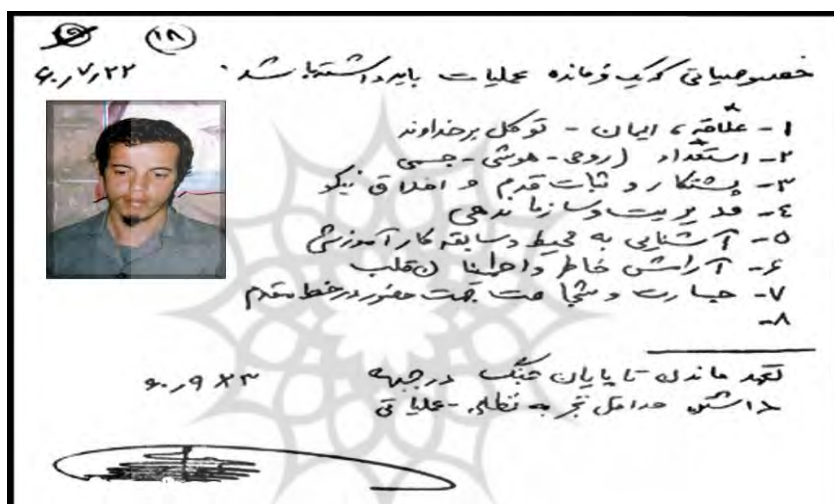 ۱۸
خصوصیاتی که یک فرمانده عملیات باید داشته باشد.
۶۰٫۷٫۲۲
۱- علاقه، ایمان - توکل بر خداوند
۲- استعداد (روحی - هوشی - جسمی
۳- پشتکار و ثبات قدم و اخلاق نیکو
۴- مدیریت و سازماندهی
۵- آشنایی به محیط و سابقه کار آموزشی
۶- آرامش خاطر و اطمینان قلب
۷- جسارت و شجاعت جهت حضور در خط مقدم
۸-
تعهد ماندن تا پایان جنگ در جبهه
داشتن حداقل تجربه نظامی - عملیاتی